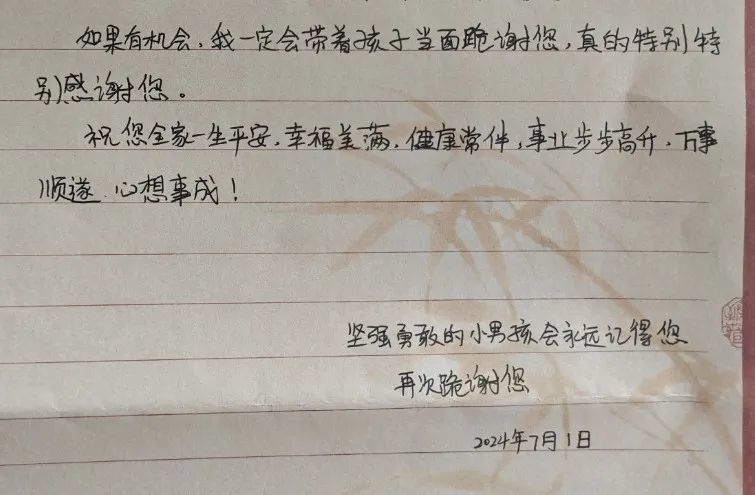 如果有机会，我一定会带着孩子当面跪谢您，真的特别特
别感谢您。
祝您全家一生平安，幸福美满，健康常伴，事业步步高升，万事
顺遂，心想事成！
坚强勇敢的小男孩会永远记得您
再次跪谢您
2024年7月1日